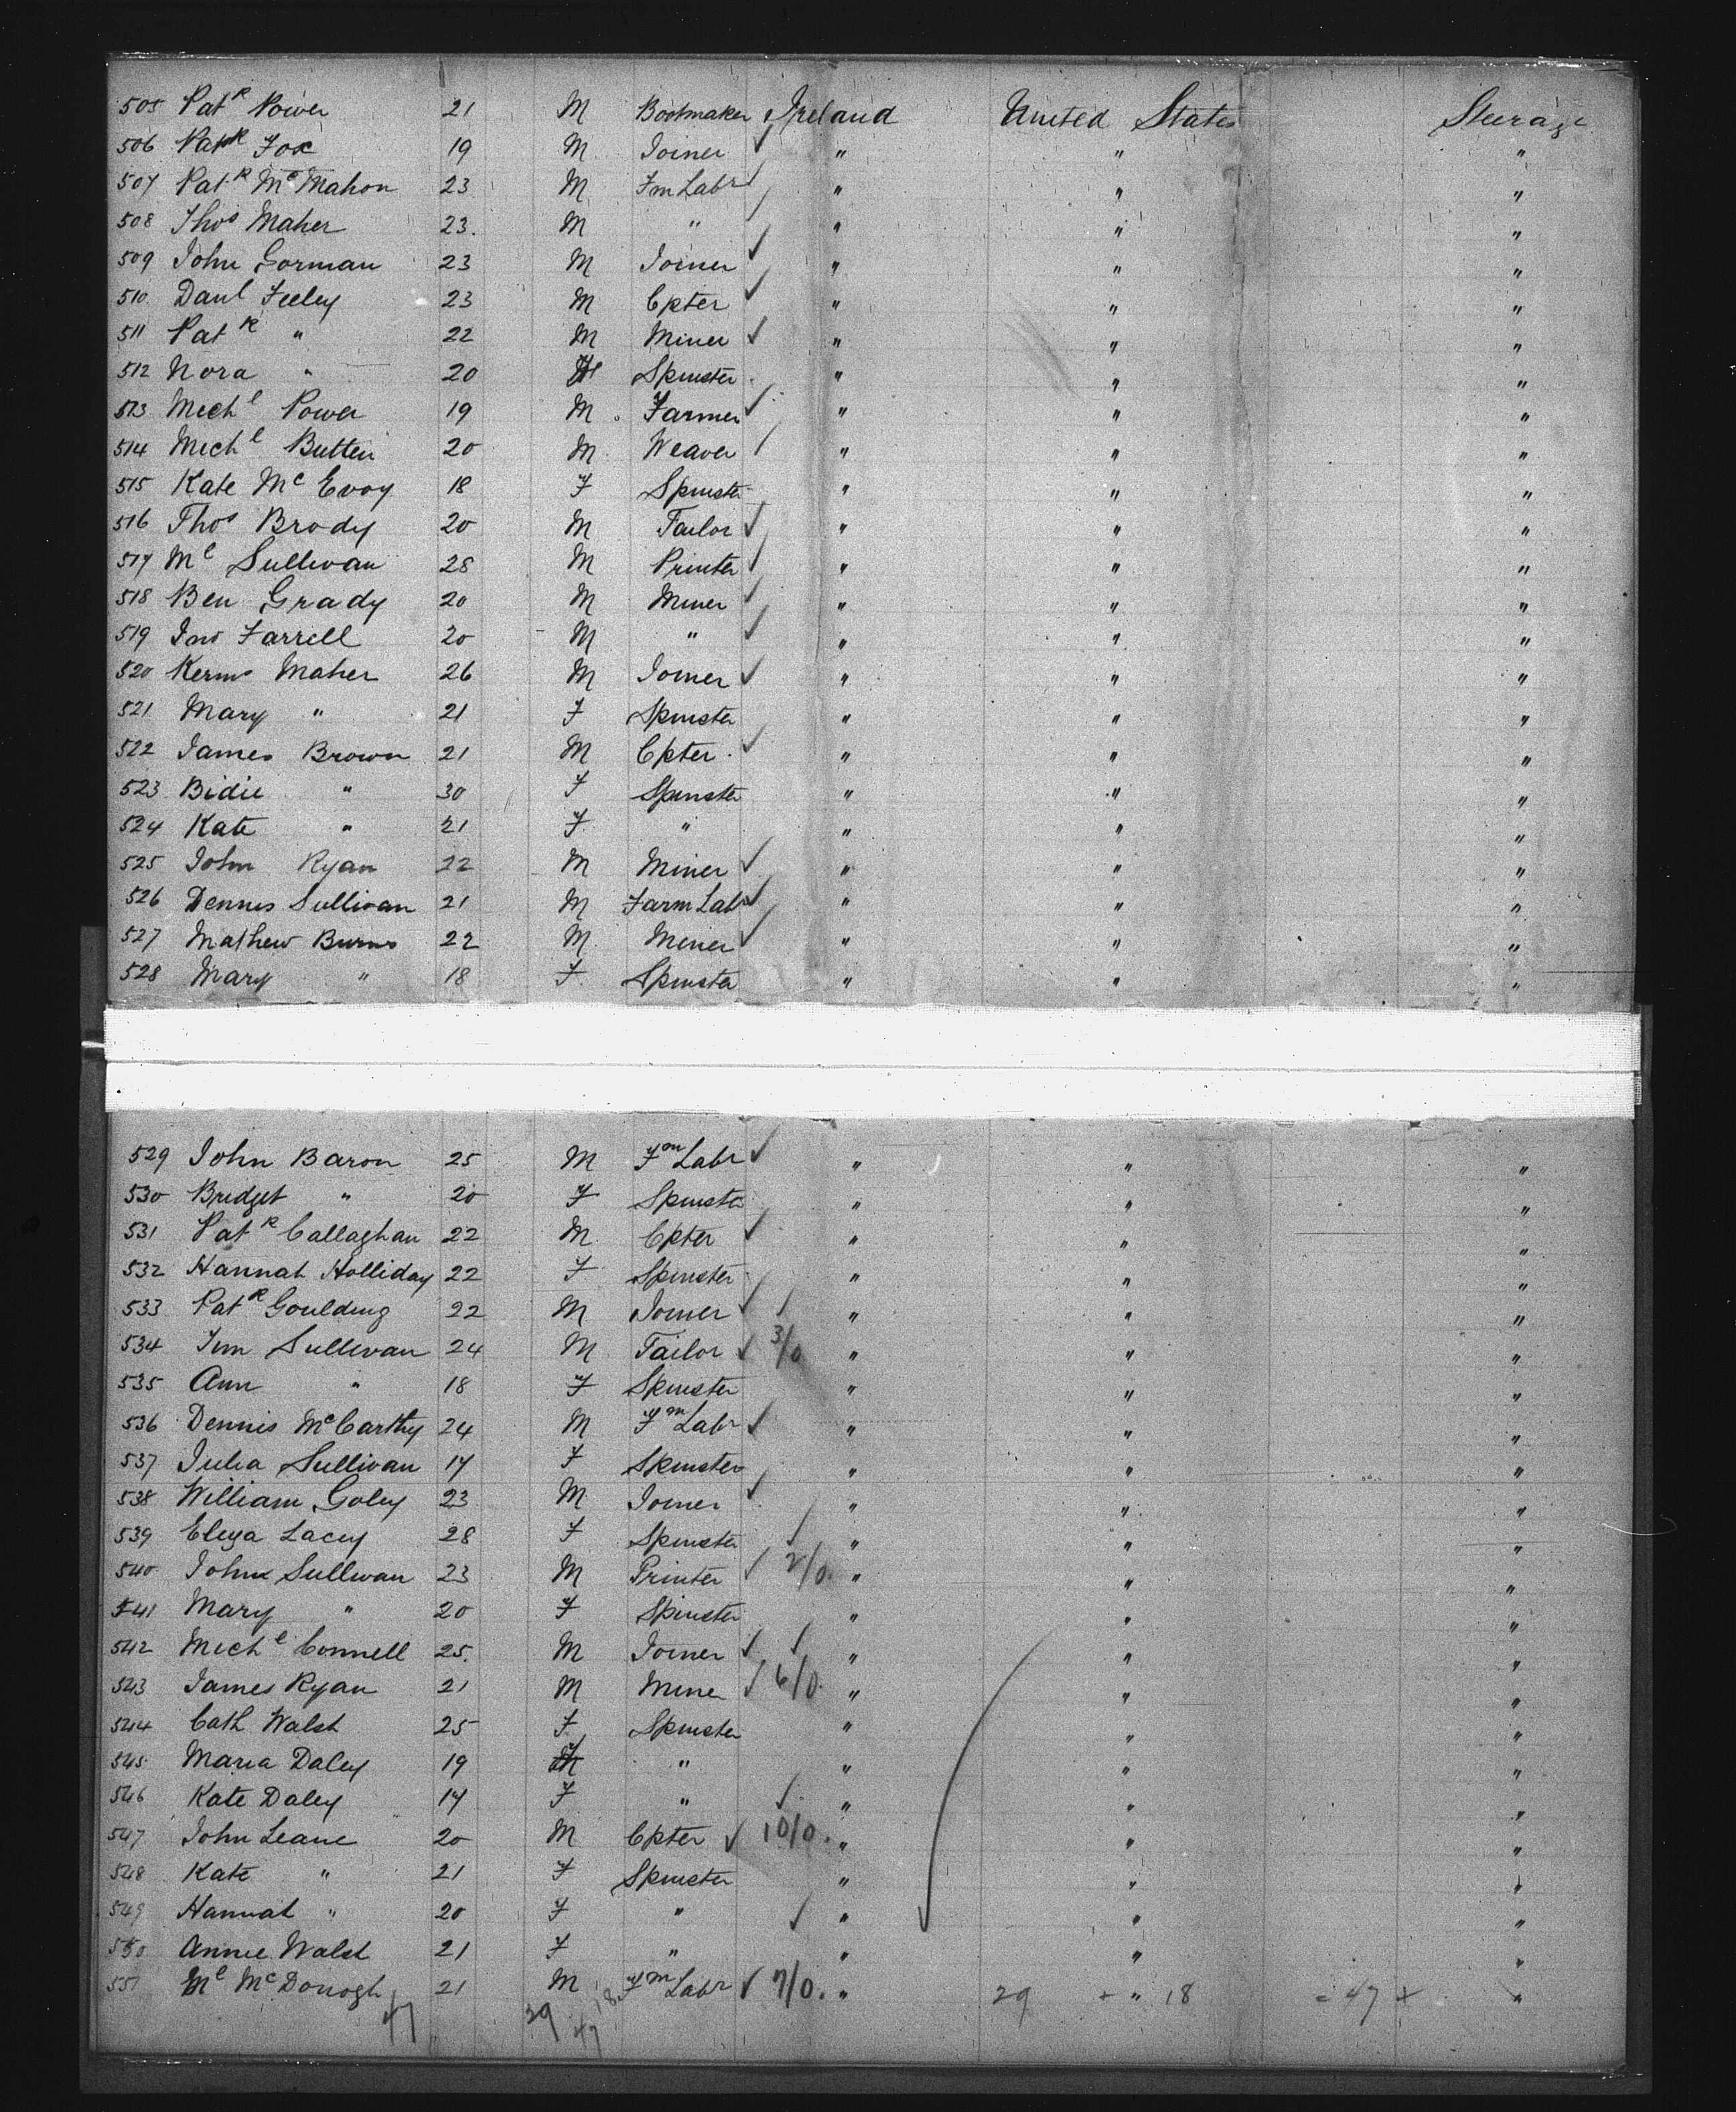 505 Pat^k Power 21 M Bootmaker Ireland United States Steerage
506 Pat^k Fox 19 M Joiner ✓ " " "
507 Pat^k McMahon 23 M Fm Labr ✓ " " "
508 Thos Maher 23. M " " " "
509 John Gorman 23 M Joiner ✓ " " "
510 Danl Feeley 23 M Cpter ✓ " " "
511 Pat^k " 22 M Miner ✓ " " "
512 Nora " 20 F Spinster " " "
513 Mich^l Power 19 M Farmer ✓ " " "
514 Mich^l Butten 20 M Weaver ✓ " " "
515 Kate McEvoy 18 F Spinster " " "
516 Thos Brody 20 M Tailor ✓ " " "
517 M^l Sullivan 28 M Printer ✓ " " "
518 Ben Grady 20 M Miner ✓ " " "
519 Jno Farrell 20 M " ✓ " " "
520 Maher 26 M Joiner ✓ " " "
521 Mary " 21 F Spinster " " "
522 James Brown 21 M Cpter ✓ " " "
523 Bidie " 30 F Spinster " " "
524 Kate " 21 F " " " "
525 John Ryan 22 M Miner ✓ " " "
526 Dennis Sullivan 21 M Farm Labr ✓ " " "
527 Mathew Burns 22 M Miner ✓ " " "
528 Mary " 18 F Spinster " " "
529 John Baron 25 M Fm Labr ✓ " " "
530 Bridget " 20 F Spinster " " "
531 Pat^k Callaghan 22 M Cpter ✓ " " "
532 Hannah Holliday 22 F Spinster " " "
533 Pat^k Goulding 22 M Joiner ✓ ✓ " " "
534 Jim Sullivan 24 M Tailor ✓ 3/0 " " "
535 Ann " 18 F Spinster " " "
536 Dennis McCarthy 24 M Fm Labr ✓ " " "
537 Julia Sullivan 17 F Spinster " " "
538 William Goley 23 M Joiner ✓ " " "
539 Eliza Lacey 28 F Spinster ✓ " " "
540 John Sullivan 23 M Printer ✓ 2/0. " " "
541 Mary " 20 F Spinster " " "
542 Mich^l Connell 25. M Joiner ✓ ✓ " " "
543 James Ryan 21 M Miner ✓ 6/0. " " "
544 Cath Walsh 25 F Spinster " " "
545 Maria Daley 19 F " " " "
546 Kate Daley 17 F " ✓ " " "
547 John Leane 20 M Cpter ✓ 10/0. " " "
548 Kate " 21 F Spinster " " "
549 Hannah " 20 F " ✓ " " "
550 Annie Walsh 21 F " " " "
551 M^l McDonogh 21 M Fm Labr ✓ 7/0. " " "
47 29 18 47 29 + 18 = 47 +